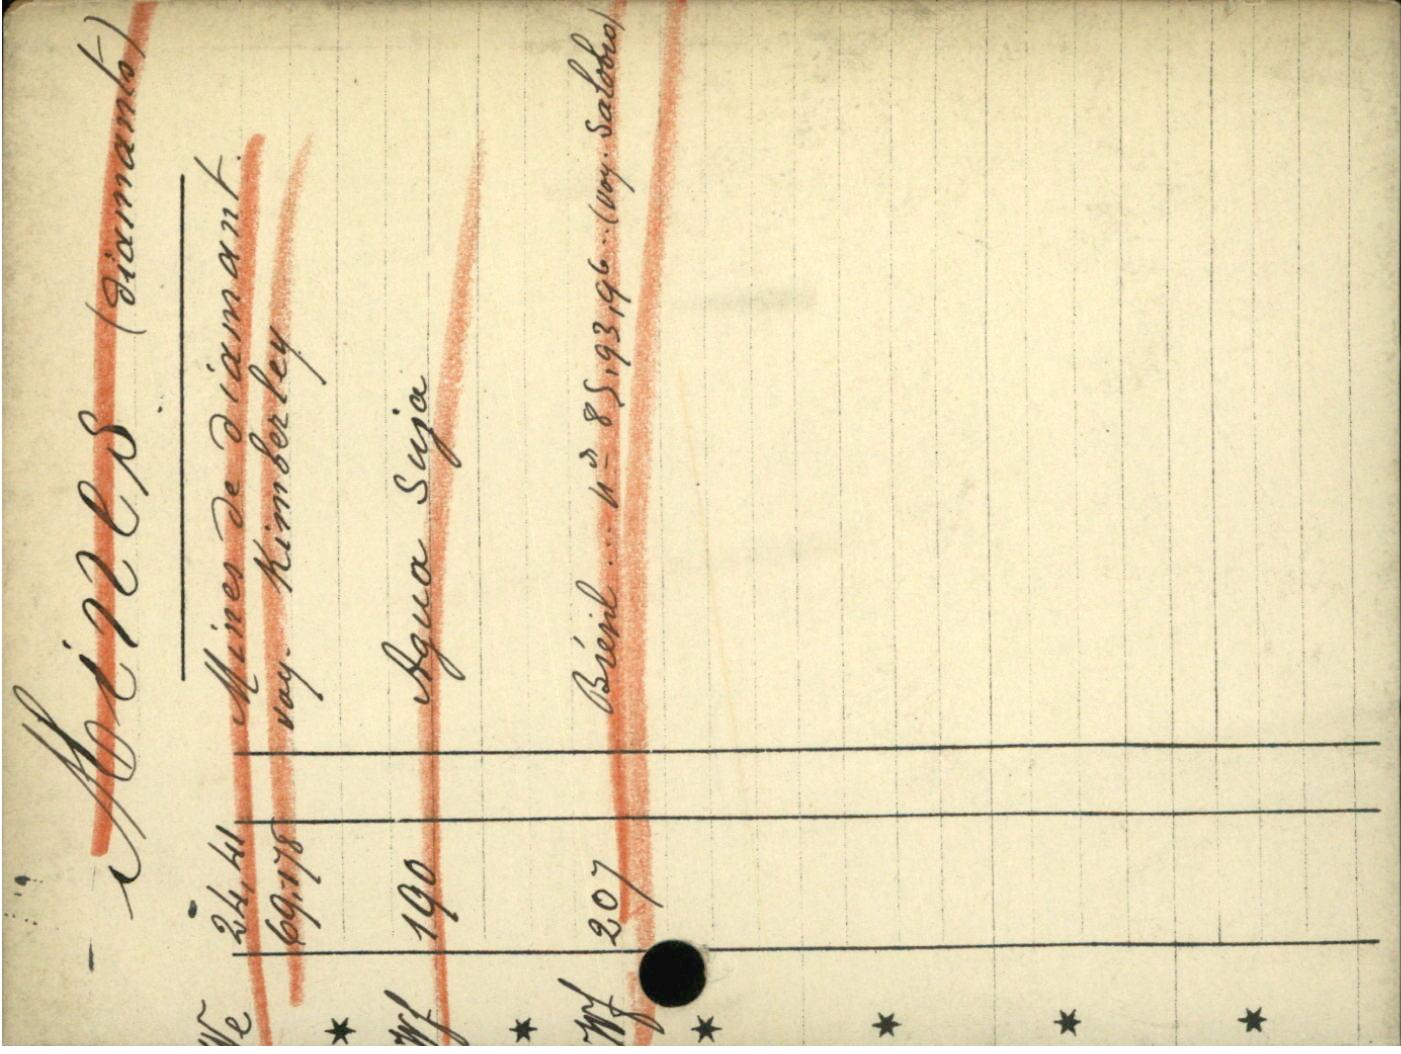 Mines (diamants)
We 24,41 Mines de diamant.
69,178 voy. Kimberley
Wf 190 Agua Suja
Wf 207 Brésil ... nos 85,93,96 .. (voy. Salobro)